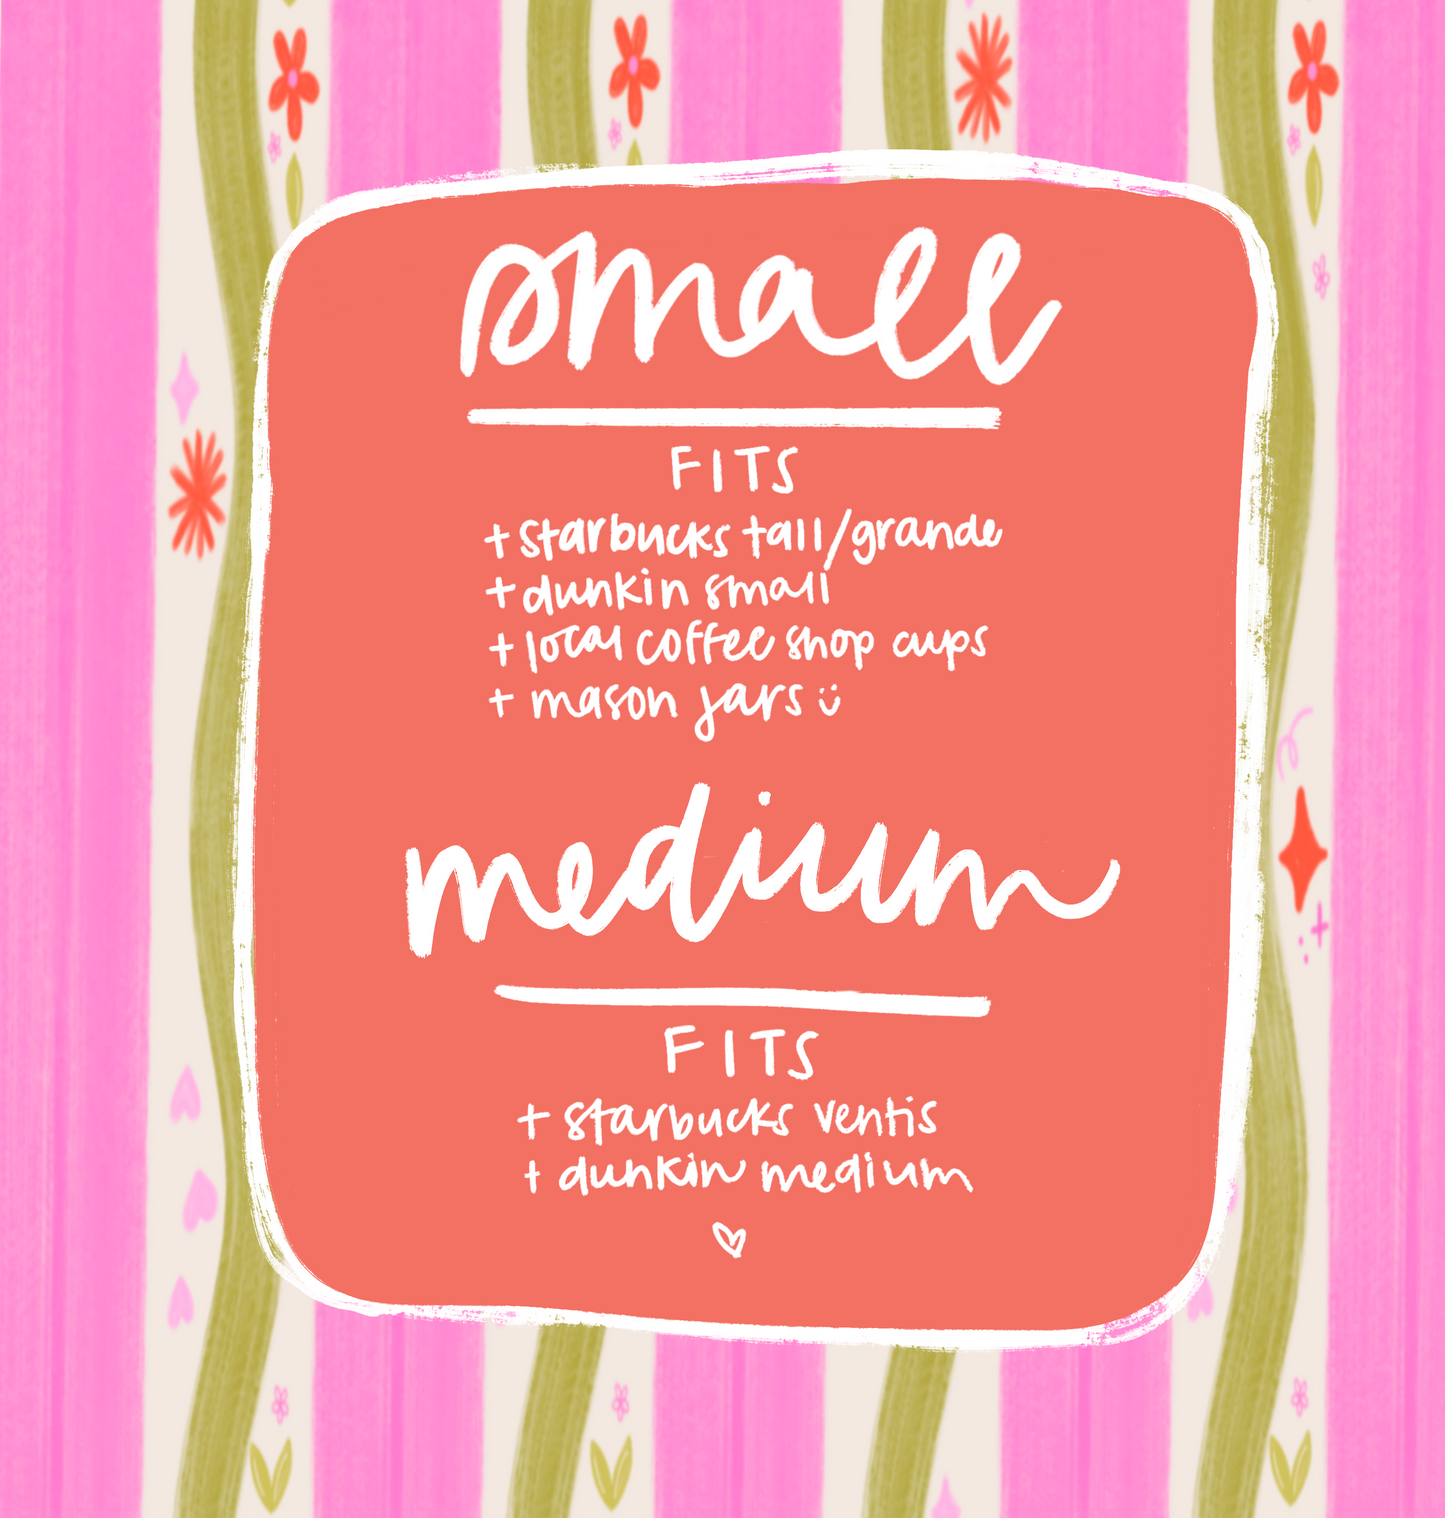 small
FITS
+ starbucks tall/grande
+ dunkin small
+ local coffee shop cups
+ mason jars :)
medium
FITS
+ starbucks ventis
+ dunkin medium